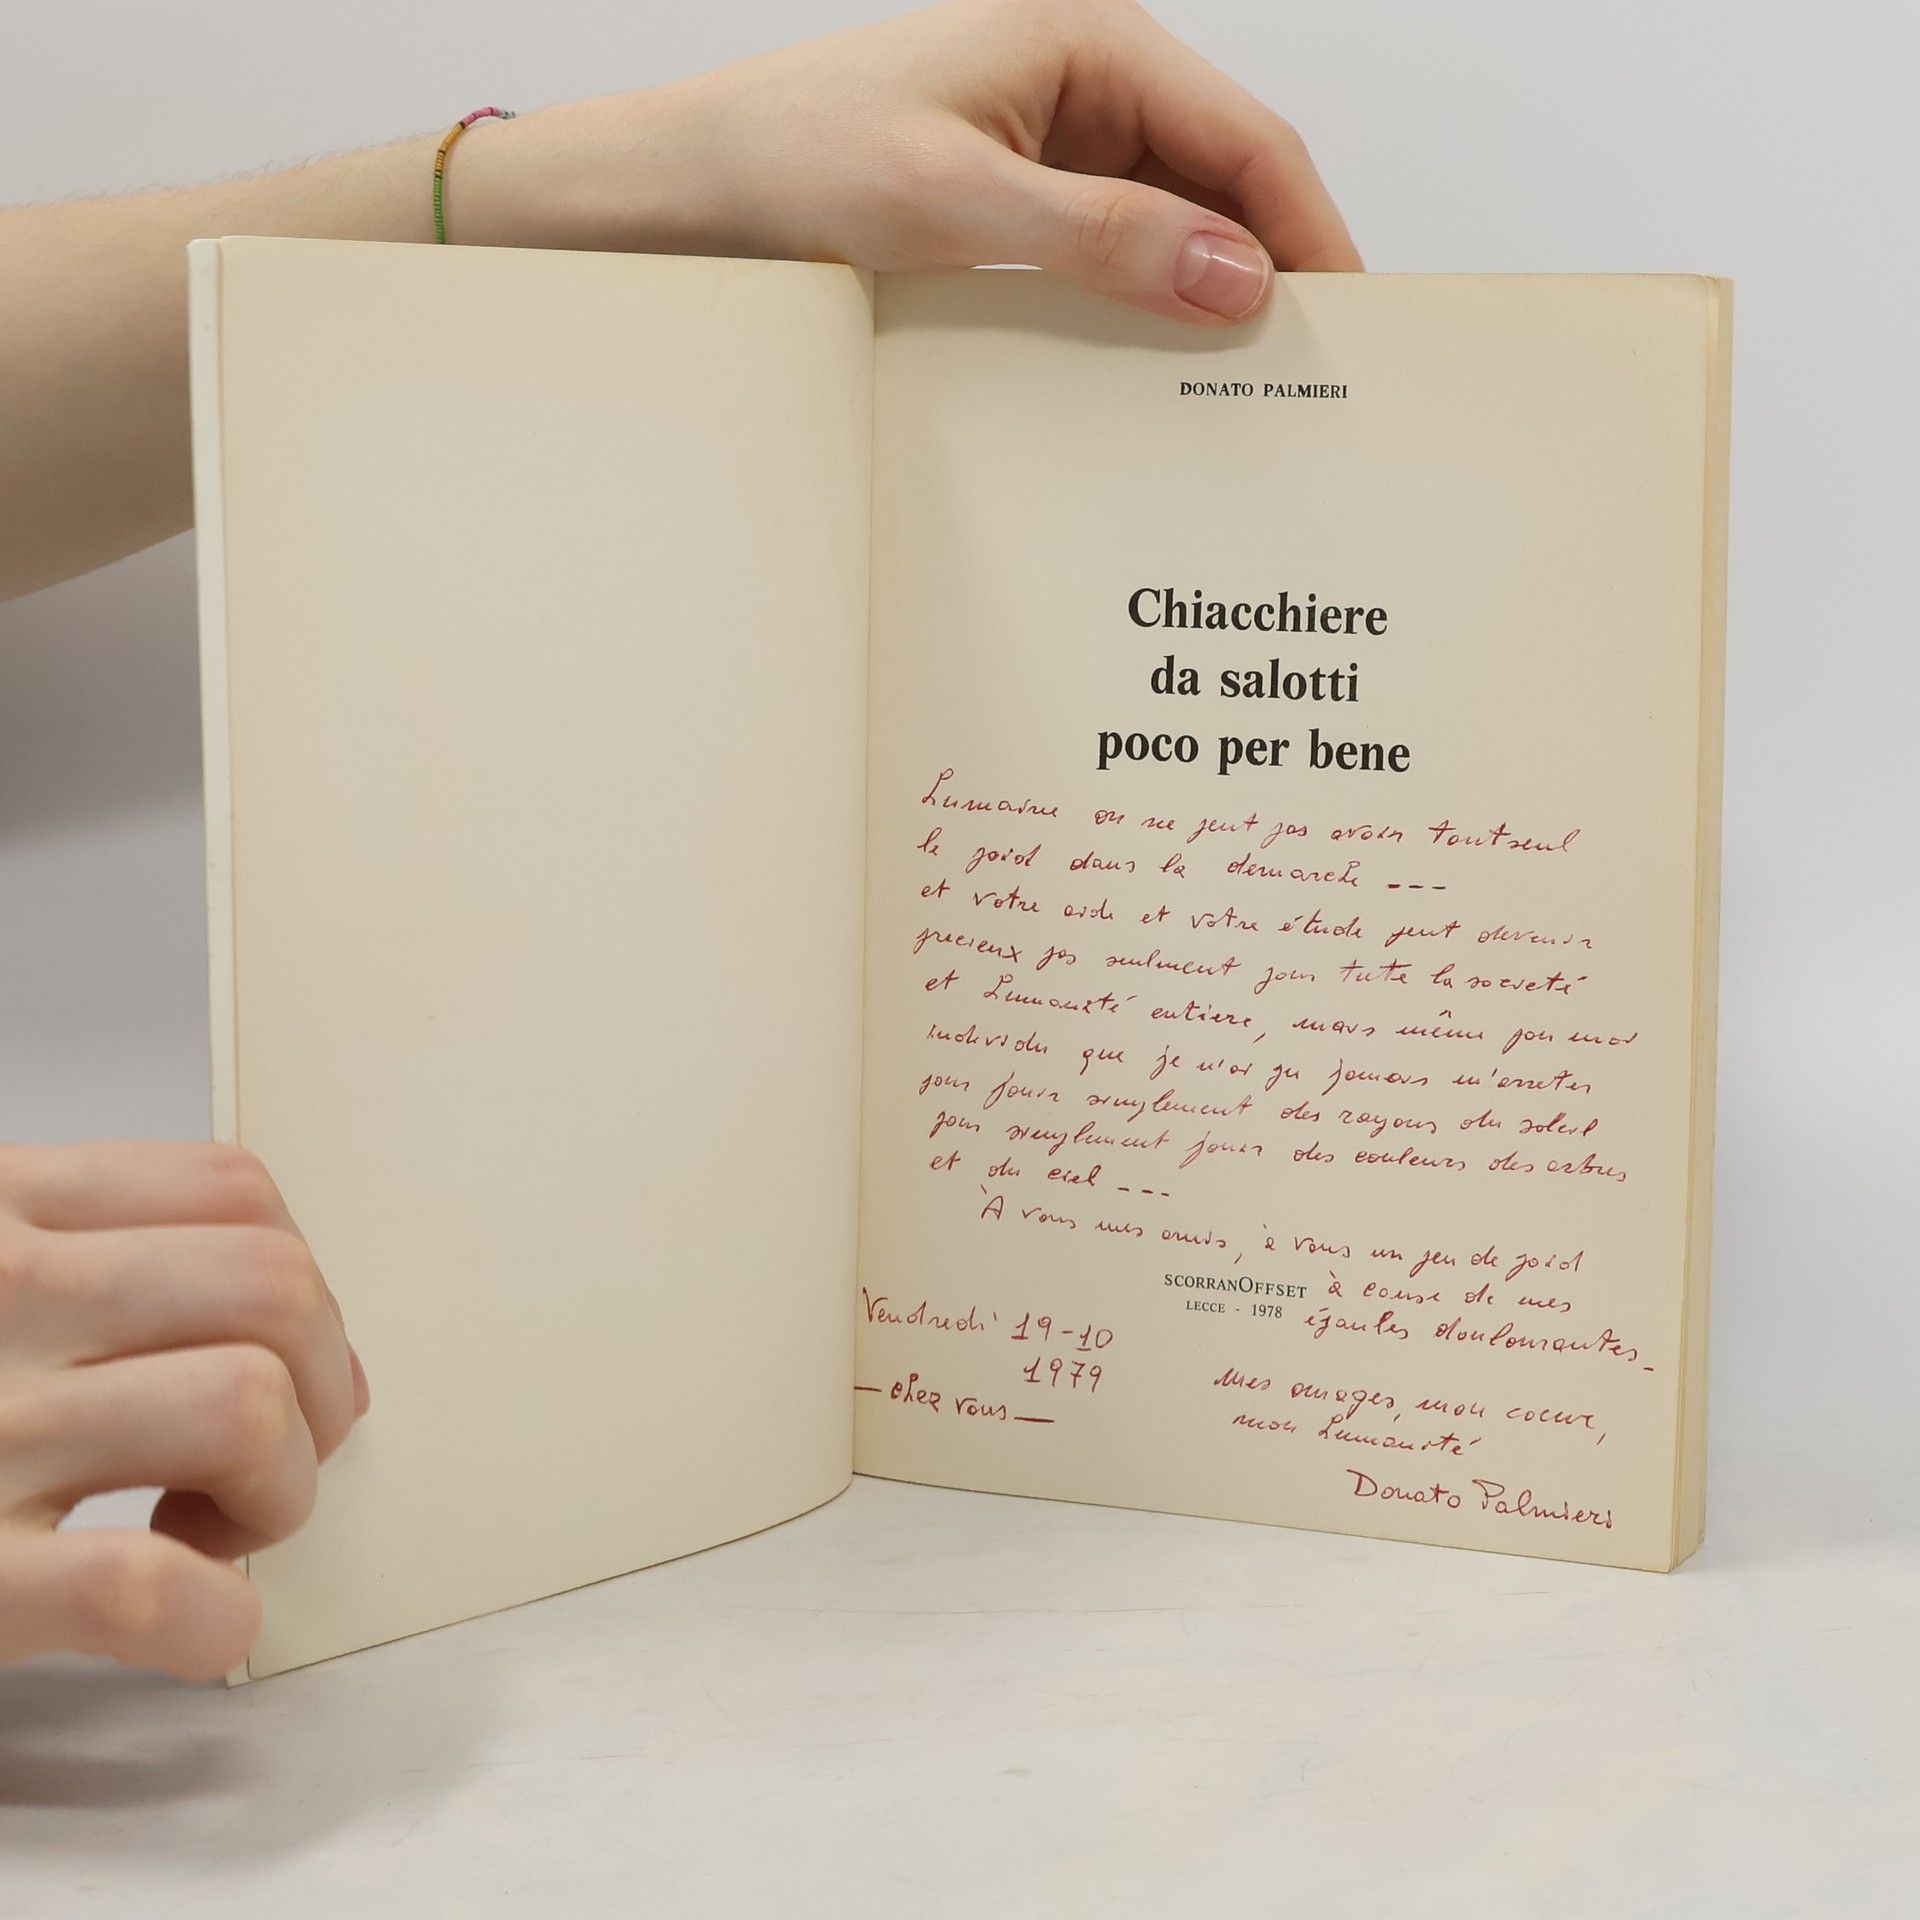 DONATO PALMIERI
Chiacchiere
da salotti
poco per bene
Lumaine on ne peut pas avoir toutseul
le poid dans la demarche ---
et votre aide et votre étude peut devenir
precieux pas seulment pour tute la societé
et Lumanité entiere, mais même pour moi
individu que je n'ai pu jamais m'arreter
pour jouir simplement des rayons du soleil
pour simplement jouir des couleurs des arbres
et du ciel ---
À vous mes amis, à vous un peu de poid
à cause de mes
épaules doulourantes_
SCORRANOFFSET
LECCE - 1978
Vendredi 19-10
1979
— chez vous —
Mes omages, mon coeur,
mon Lumanité
Donato Palmieri